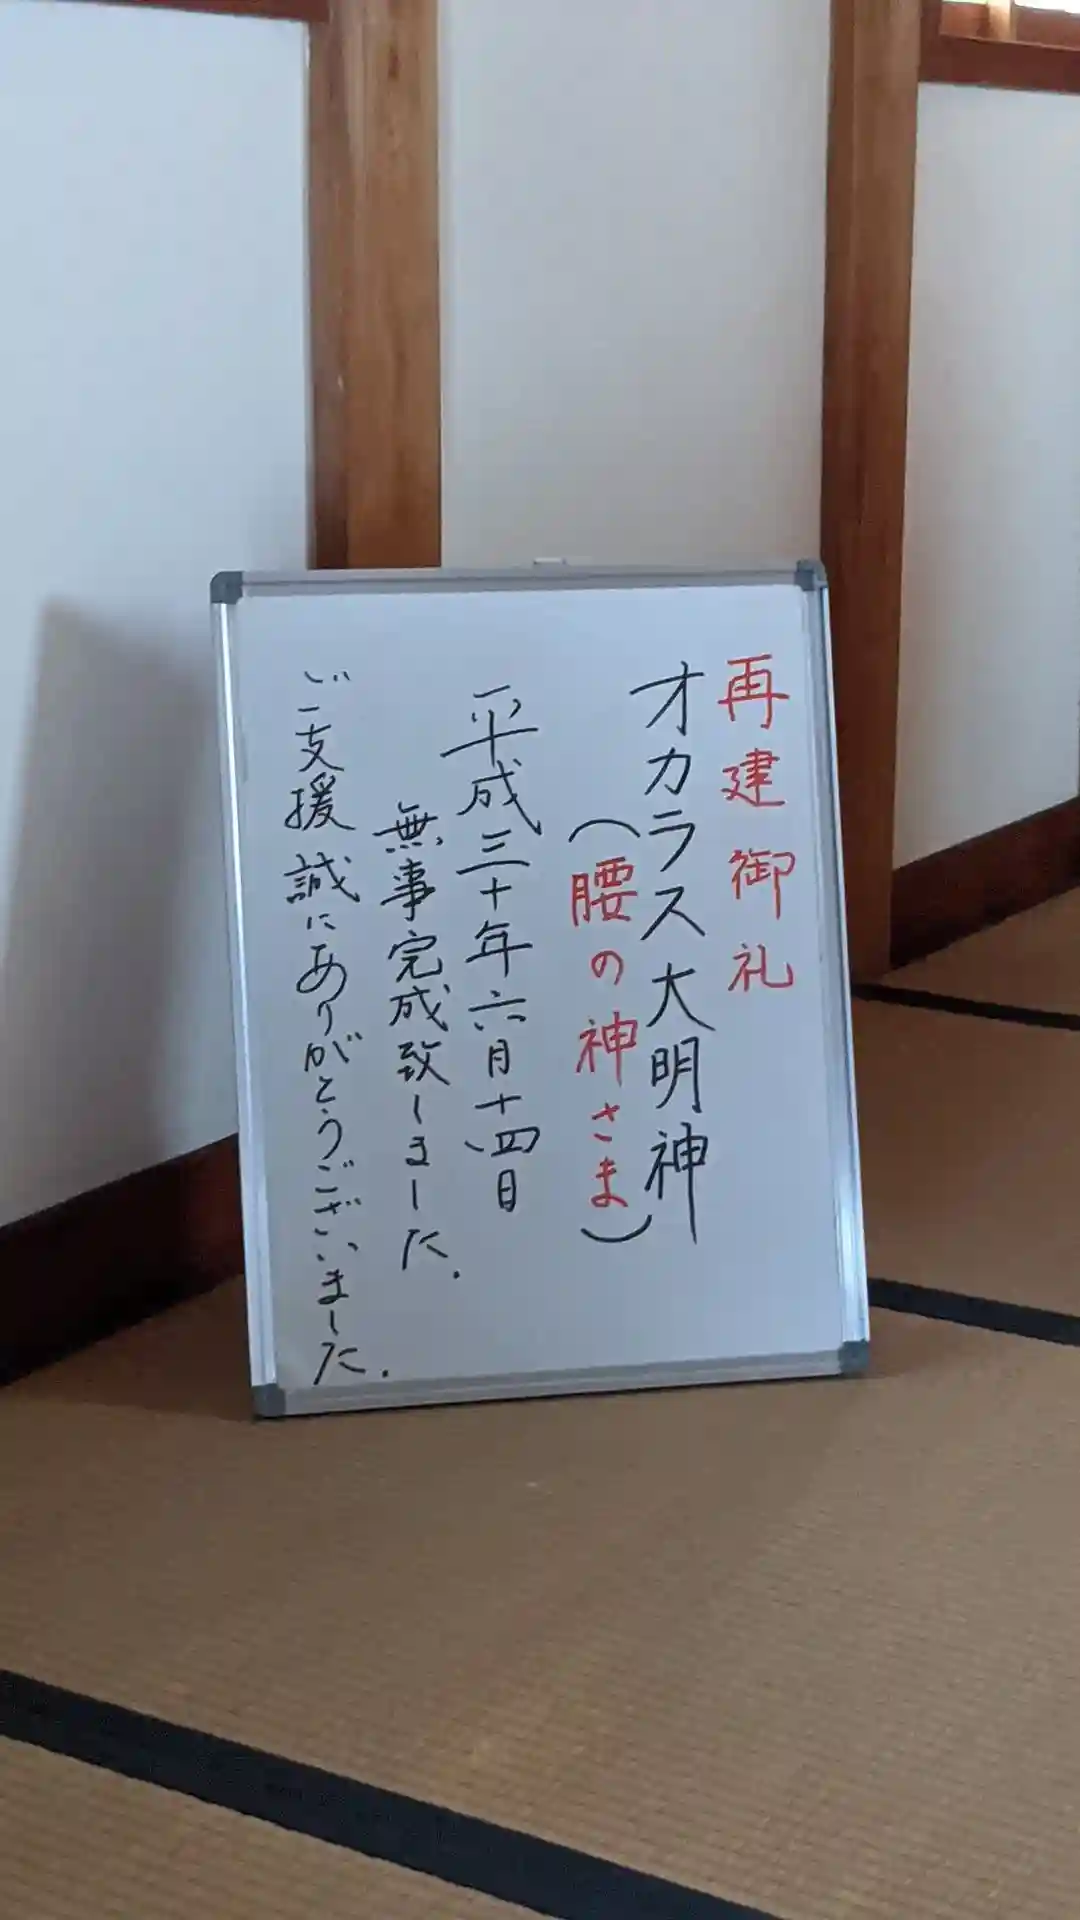 再建御礼
オカラス大明神
(腰の神さま)
平成三十年六月十四日
無事完成致しました.
ご支援誠にありがとうございました.